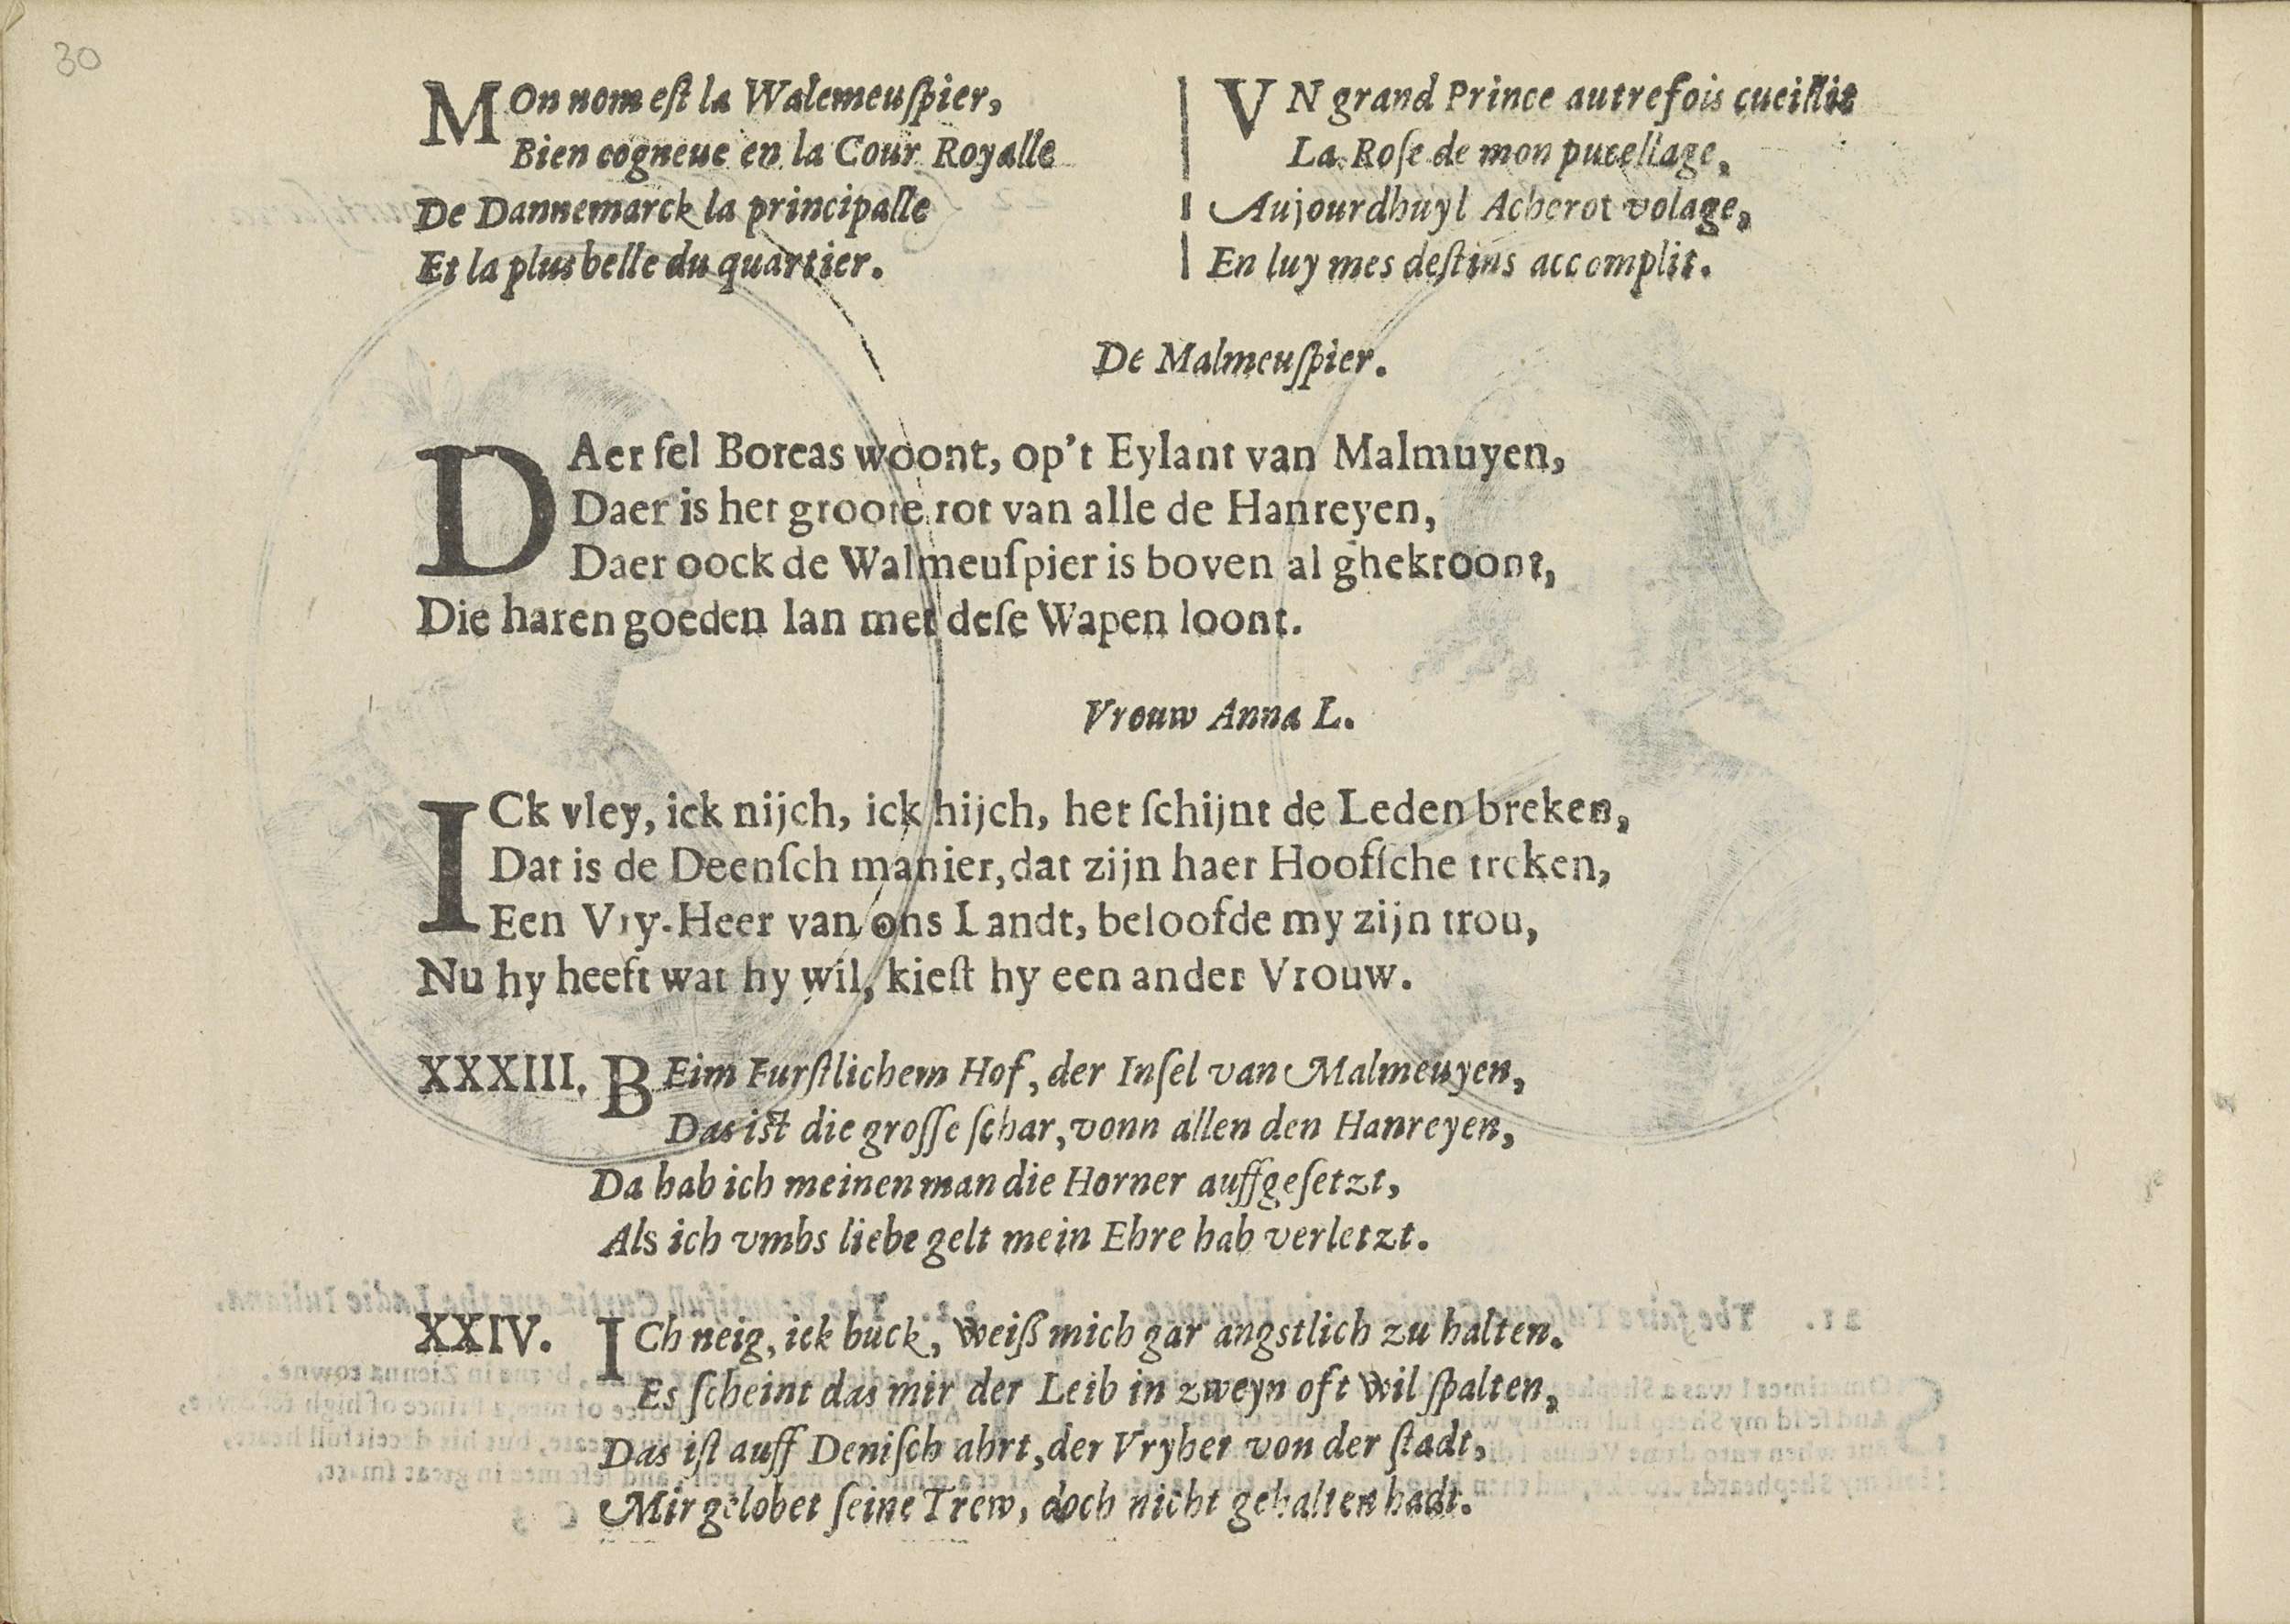 30
MOn nom eſt la Walemeuſpier,
Bien cogneue en la Cour Royalle
De Dannemarck la principalle
Et la plus belle du quartier.
VN grand Prince autrefois cueillit
La Roſe de mon pucellage,
Aujourdhuyl Acherot volage,
En luy mes deſtins accomplit.
De Malmeuſpier.
DAer fel Boreas woont, op't Eylant van Malmuyen,
Daer is het groote rot van alle de Hanreyen,
Daer oock de Walmeuſpier is boven al ghekroont,
Die haren goeden Ian met deſe Wapen loont.
Vrouw Anna L.
ICk vley, ick nijch, ick hijch, het ſchijnt de Leden breken,
Dat is de Deenſch manier, dat zijn haer Hoofſche treken,
Een Vry-Heer van ons Landt, beloofde my zijn trou,
Nu hy heeft wat hy wil, kieſt hy een ander Vrouw.
XXXIII. BEim Furſtlichem Hof, der Inſel van Malmeuyen,
Das iſt die groſſe ſchar, vonn allen den Hanreyen,
Da hab ich meinen man die Horner auffgeſetzt,
Als ich vmbs liebe gelt mein Ehre hab verletzt.
XXIV. ICh neig, ick buck, weiß mich gar angstlich zu halten.
Es ſcheint das mir der Leib in zweyn oft wil ſpalten,
Das iſt auff Deniſch ahrt, der Vryher von der ſtadt,
Mir gelobet ſeine Trew, doch nicht gehalten hadt.